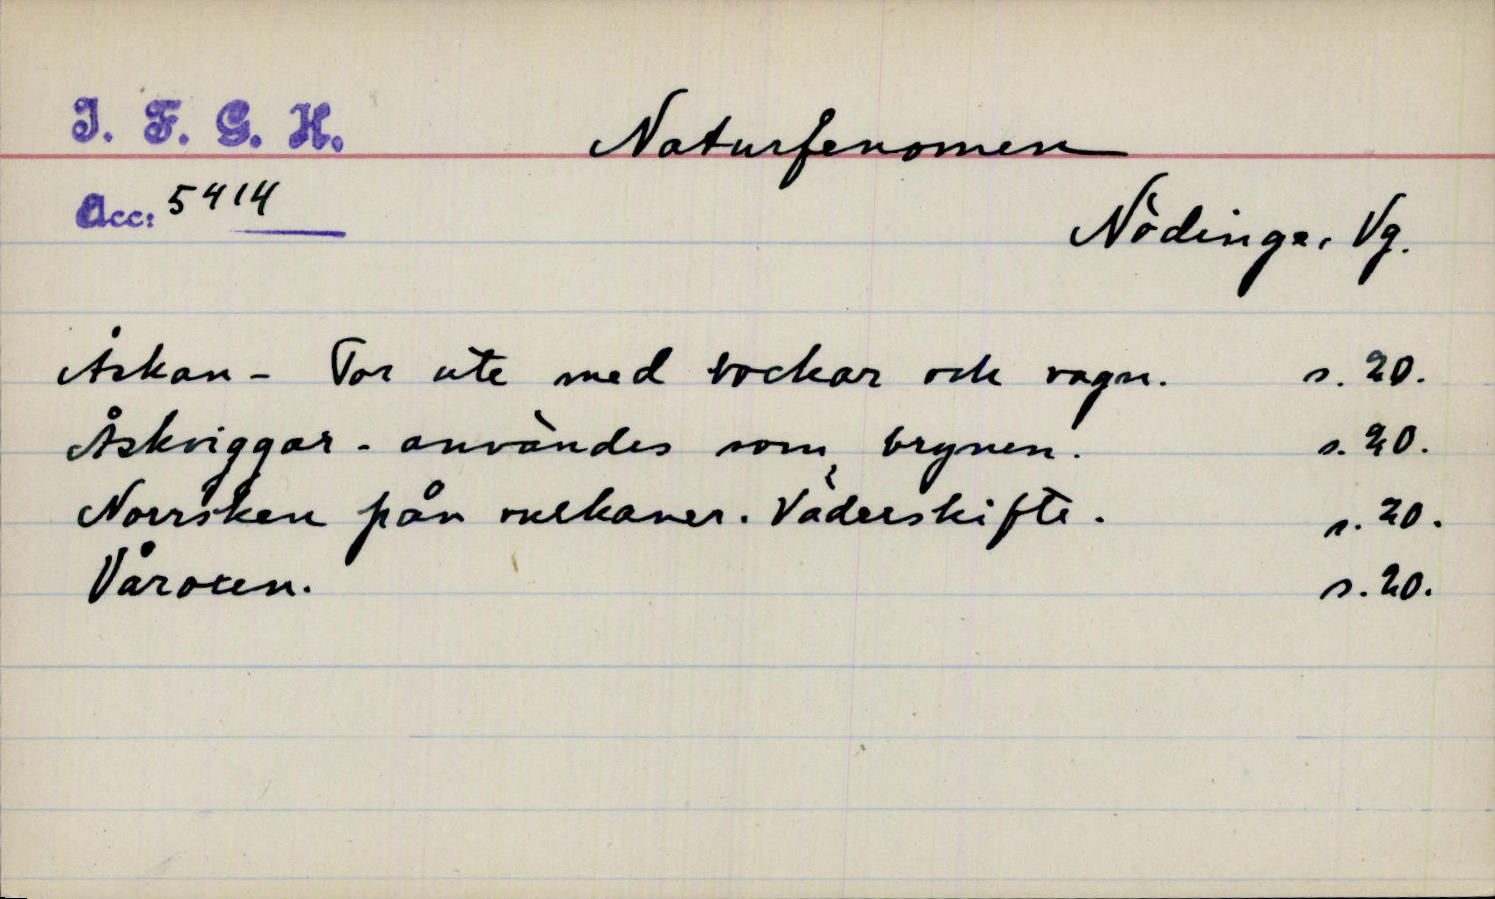 I. F. G. H.
Naturfenomen
Acc: 5414
Nödinge, Vg.
Åskan - Tor ute med bockar och vagn. s. 20.
Åskviggar - användes som brynen. s. 20.
Norrsken från vulkaner. Väderskifte. s. 20.
Våroxen. s. 20.